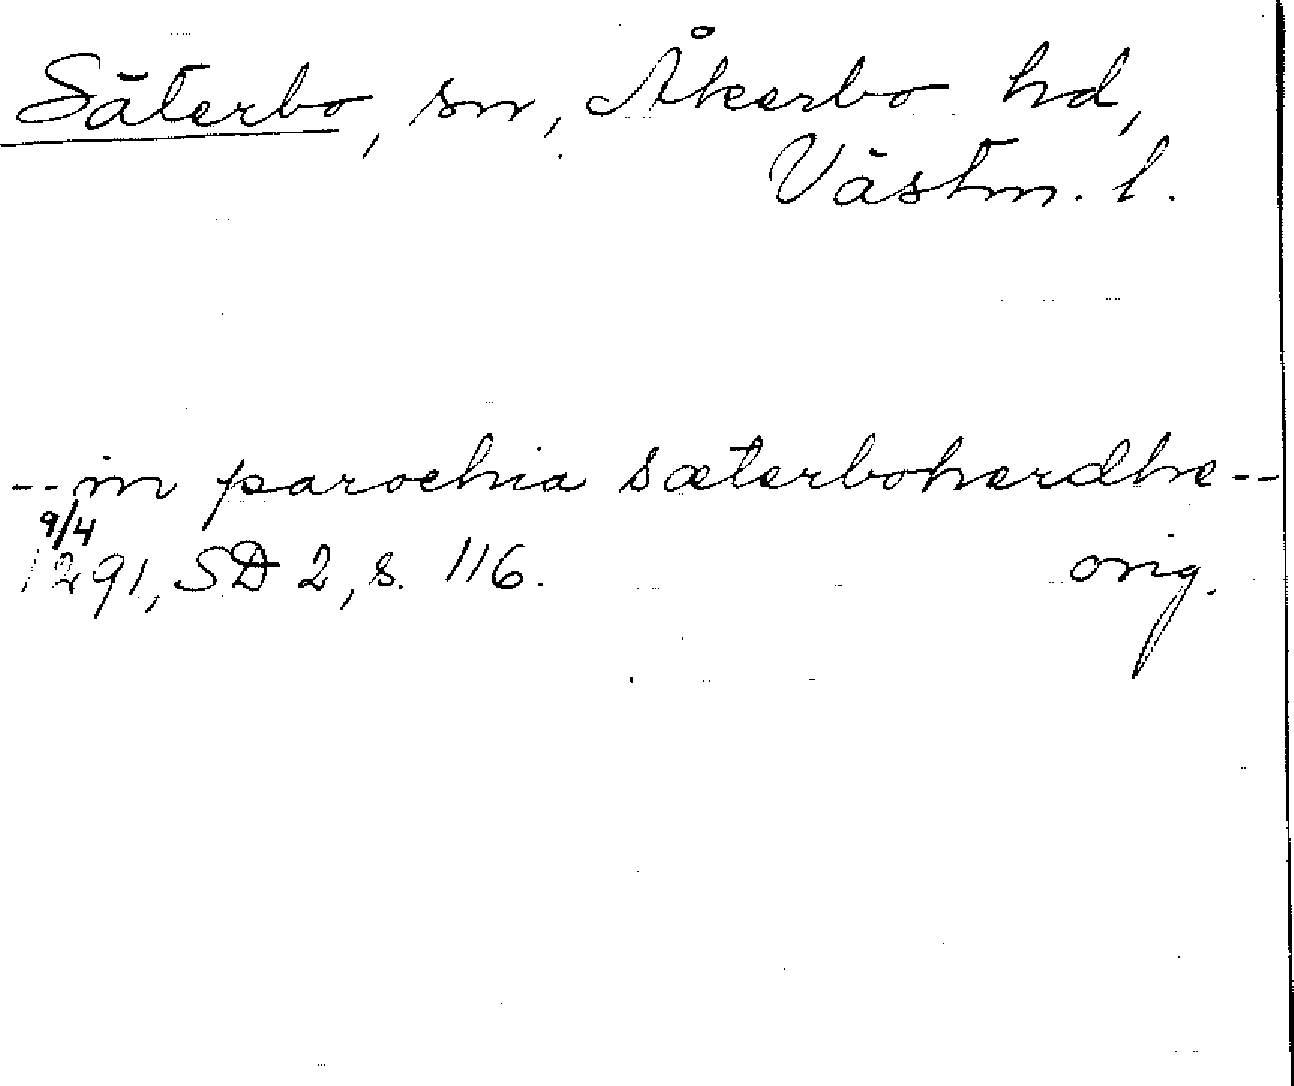 Säterbo, sn, Åkerbo hd,
Västm. l.
-- in parochia sæterboherdhe --
9/4
1291, SD 2, s. 116. orig.